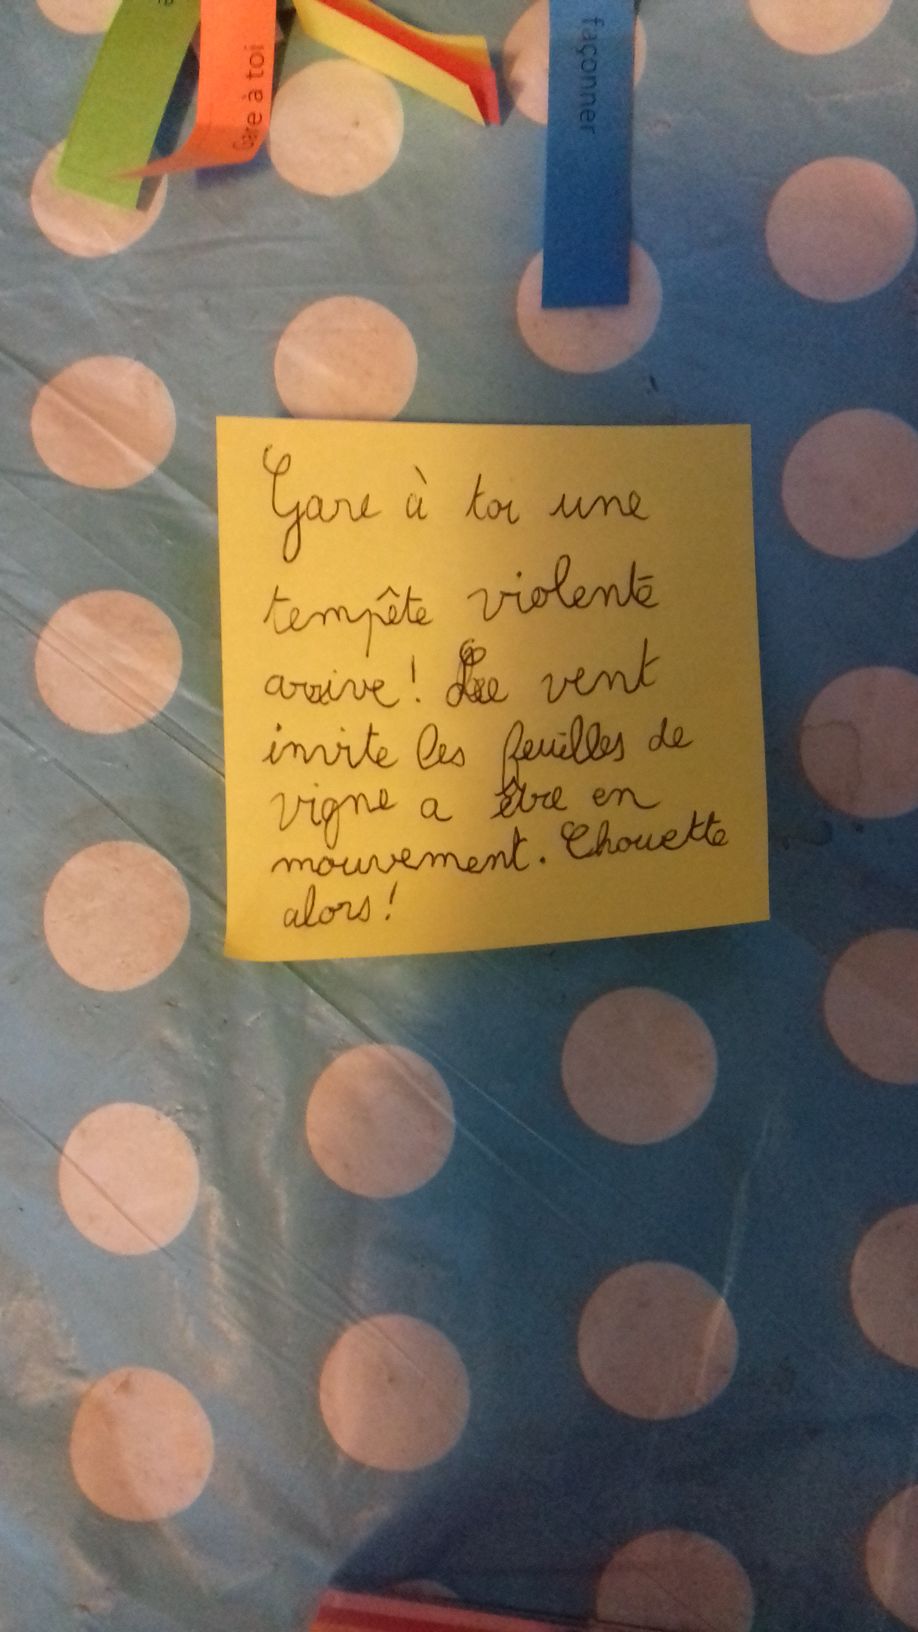 Gare à toi
façonner
Gare à toi une
tempête violente
arrive! Le vent
invite les feuilles de
vigne a être en
mouvement. Chouette
alors!